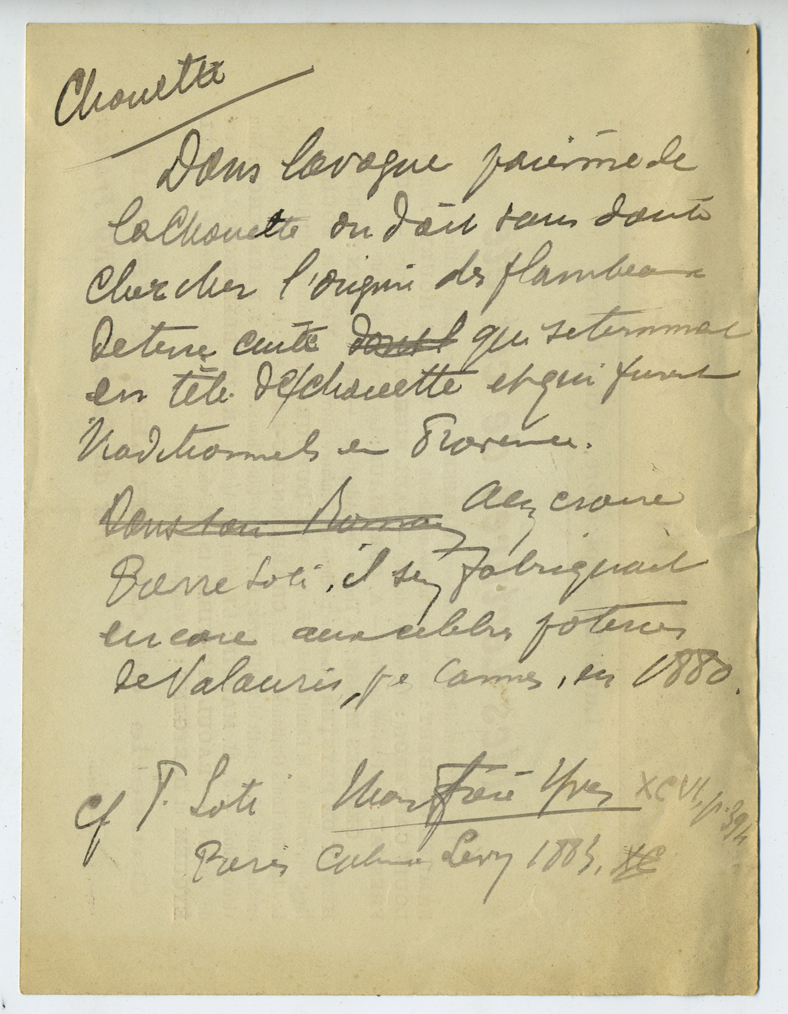 Chouette
Dans la vogue païenne de
la Chouette on doit sans doute
chercher l'origine des flambeaux
de terre cuite dont qui se terminent
en tête de chouette et qui furent
traditionnels en Provence.
Dans son Roman A en croire
Pierre Loti, il s'en fabriquait
encore aux célèbres poteries
de Valauris, p. Cannes, en 1880.
cf P. Loti Mon frère Yves XCVI, p. 394
Paris Calman Levy 1883, XC